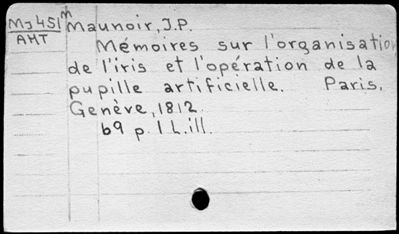 MJ451m Maunoir, J.P.
AMT
Mémoires sur l'organisation
de l'iris et l'opération de la
pupille artificielle. Paris,
Genève, 1812.
69 p. 1 L. ill.